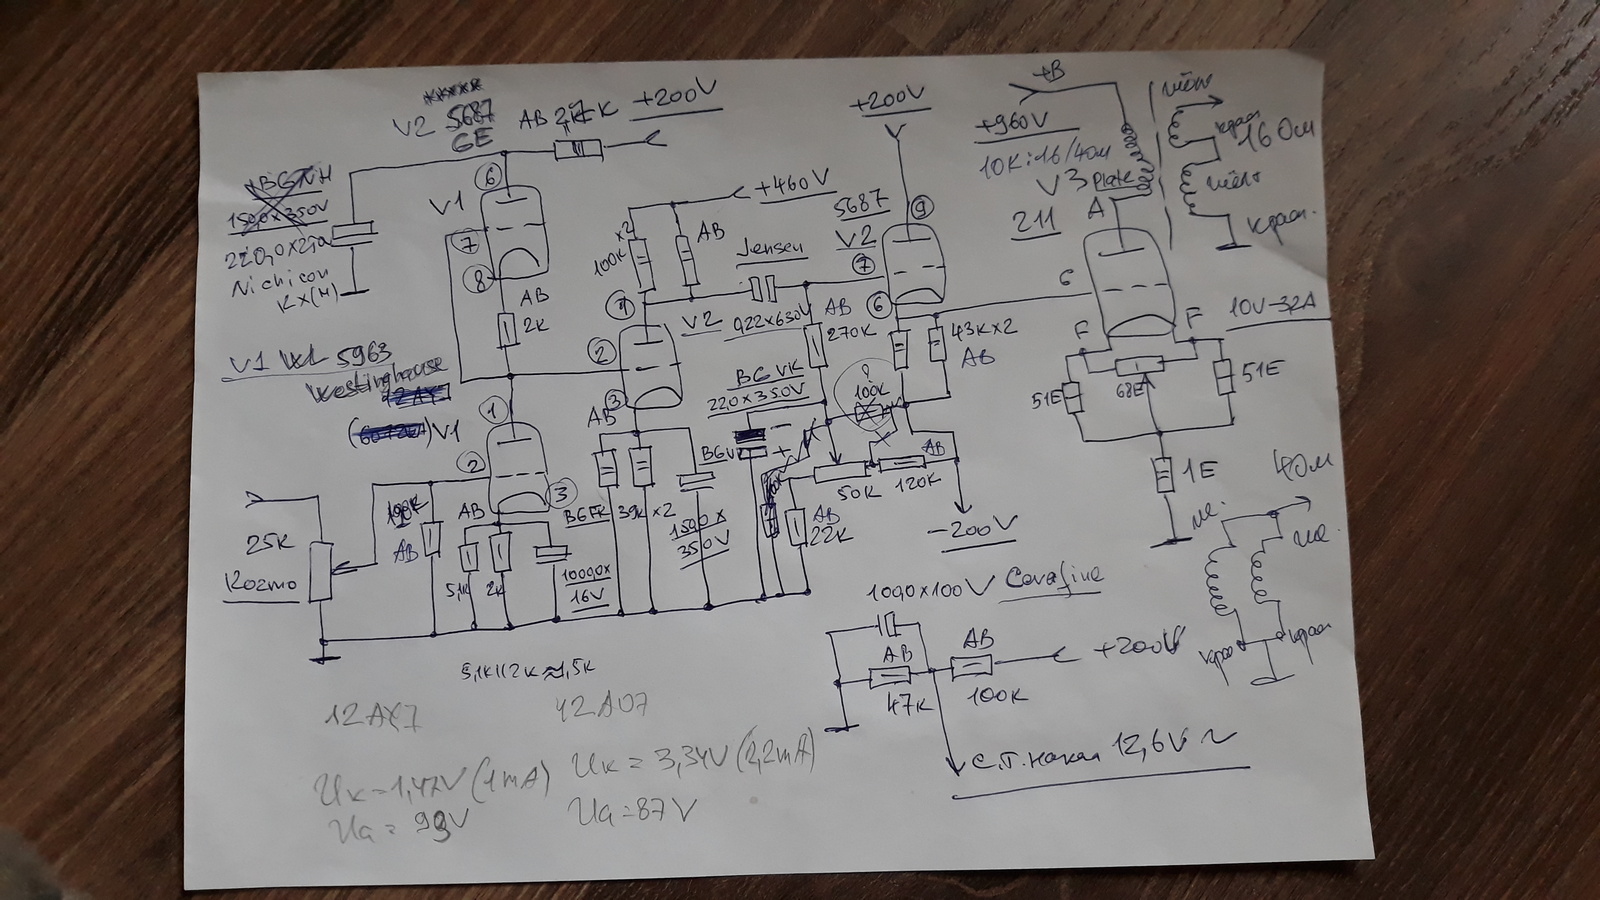 V2 5687
GE
AB
+200V
+200V
+B
+960V
10K:16/4Ом
V3 Plate
211
A
G
F
F
10V-32A
16 Ом
крас.
1500x350V
220,0x250
Nichicon
KX(M)
V1
6
7
8
AB
2K
100K x2
AB
+460V
Jensen
0,22x630V
5687
V2
9
7
6
1
2
3
V2
AB
270K
43K x2
AB
V1 5963
Westinghouse
V1
1
2
3
BG VK
220x350V
?
100K
AB
-
+
50K
120K
-200V
AB
22K
51E
68E
51E
1E
4Ом
25K
Kozmo
100K
AB
AB
5,1K
2K
1000x
16V
AB
BG FK
39K x2
1500x
350V
5,1K||2K≈1,5K
1000x100V Cerafine
AB
47K
AB
100K
+200V
С.Т. накал 12,6V ~
12AY7
12AU7
Uк=1,47V (1mA)
Ua=93V
Uк=3,34V (2,2mA)
Ua=87V